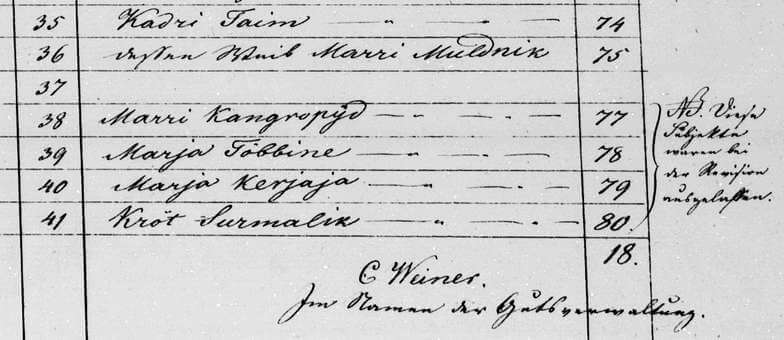 35 Kadri Taim — " — . — 74
36 dessen Weib Marri Muldnik 75
37
38 Marri Kangropýd — . — . — 77
39 Marja Többine — " — . — 78
40 Marja Kerjaja — " — . — 79
41 Kröt Surmalik — " — . — 80.
NB. Diese
Subjekte
waren bei
der Revision
ausgelassen.
18.
C Weiner.
Im Namen der Gutsverwaltung.